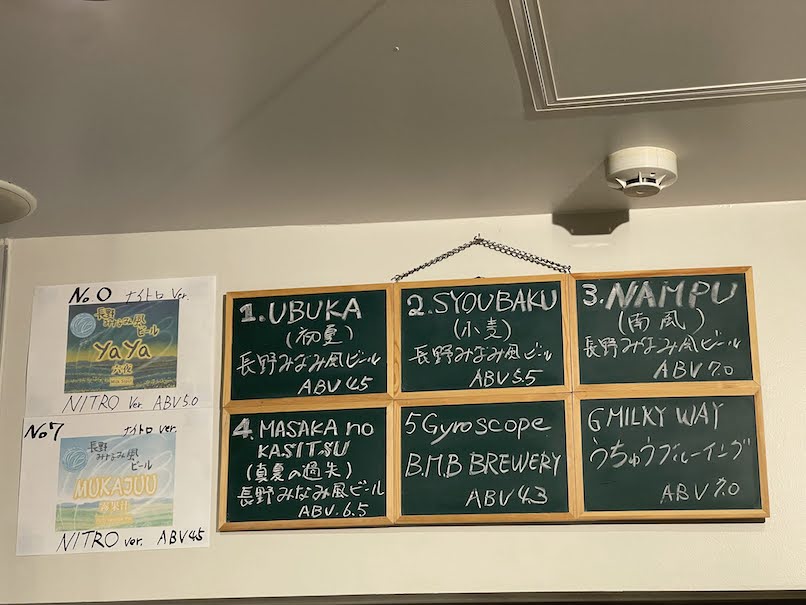 No 0 ナイトロ Ver.
長野
みなみ風
ビール
YaYa
NITRO Ver ABV 5.0
No7 ナイトロ ver.
長野
みなみ風
ビール
MUKAJUU
NITRO ver. ABV 4.5
1. UBUKA
(初夏)
長野みなみ風ビール
ABV 4.5
2. SYOUBAKU
(小麦)
長野みなみ風ビール
ABV 5.5
3. NAMPU
(南風)
長野みなみ風ビール
ABV 7.0
4. MASAKA no
KASITSU
(真夏の過失)
長野みなみ風ビール
ABV. 6.5
5 Gyroscope
B.M.B BREWERY
ABV 4.3
6 MILKY WAY
うちゅうブルーイング
ABV 7.0